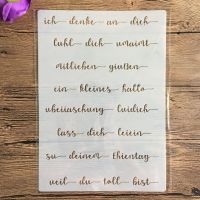 ich denke an dich
fühl dich umarmt
mit lieben grüßen
ein kleines hallo
überraschung für dich
lass dich feiern
zu deinem Ehrentag
weil du toll bist